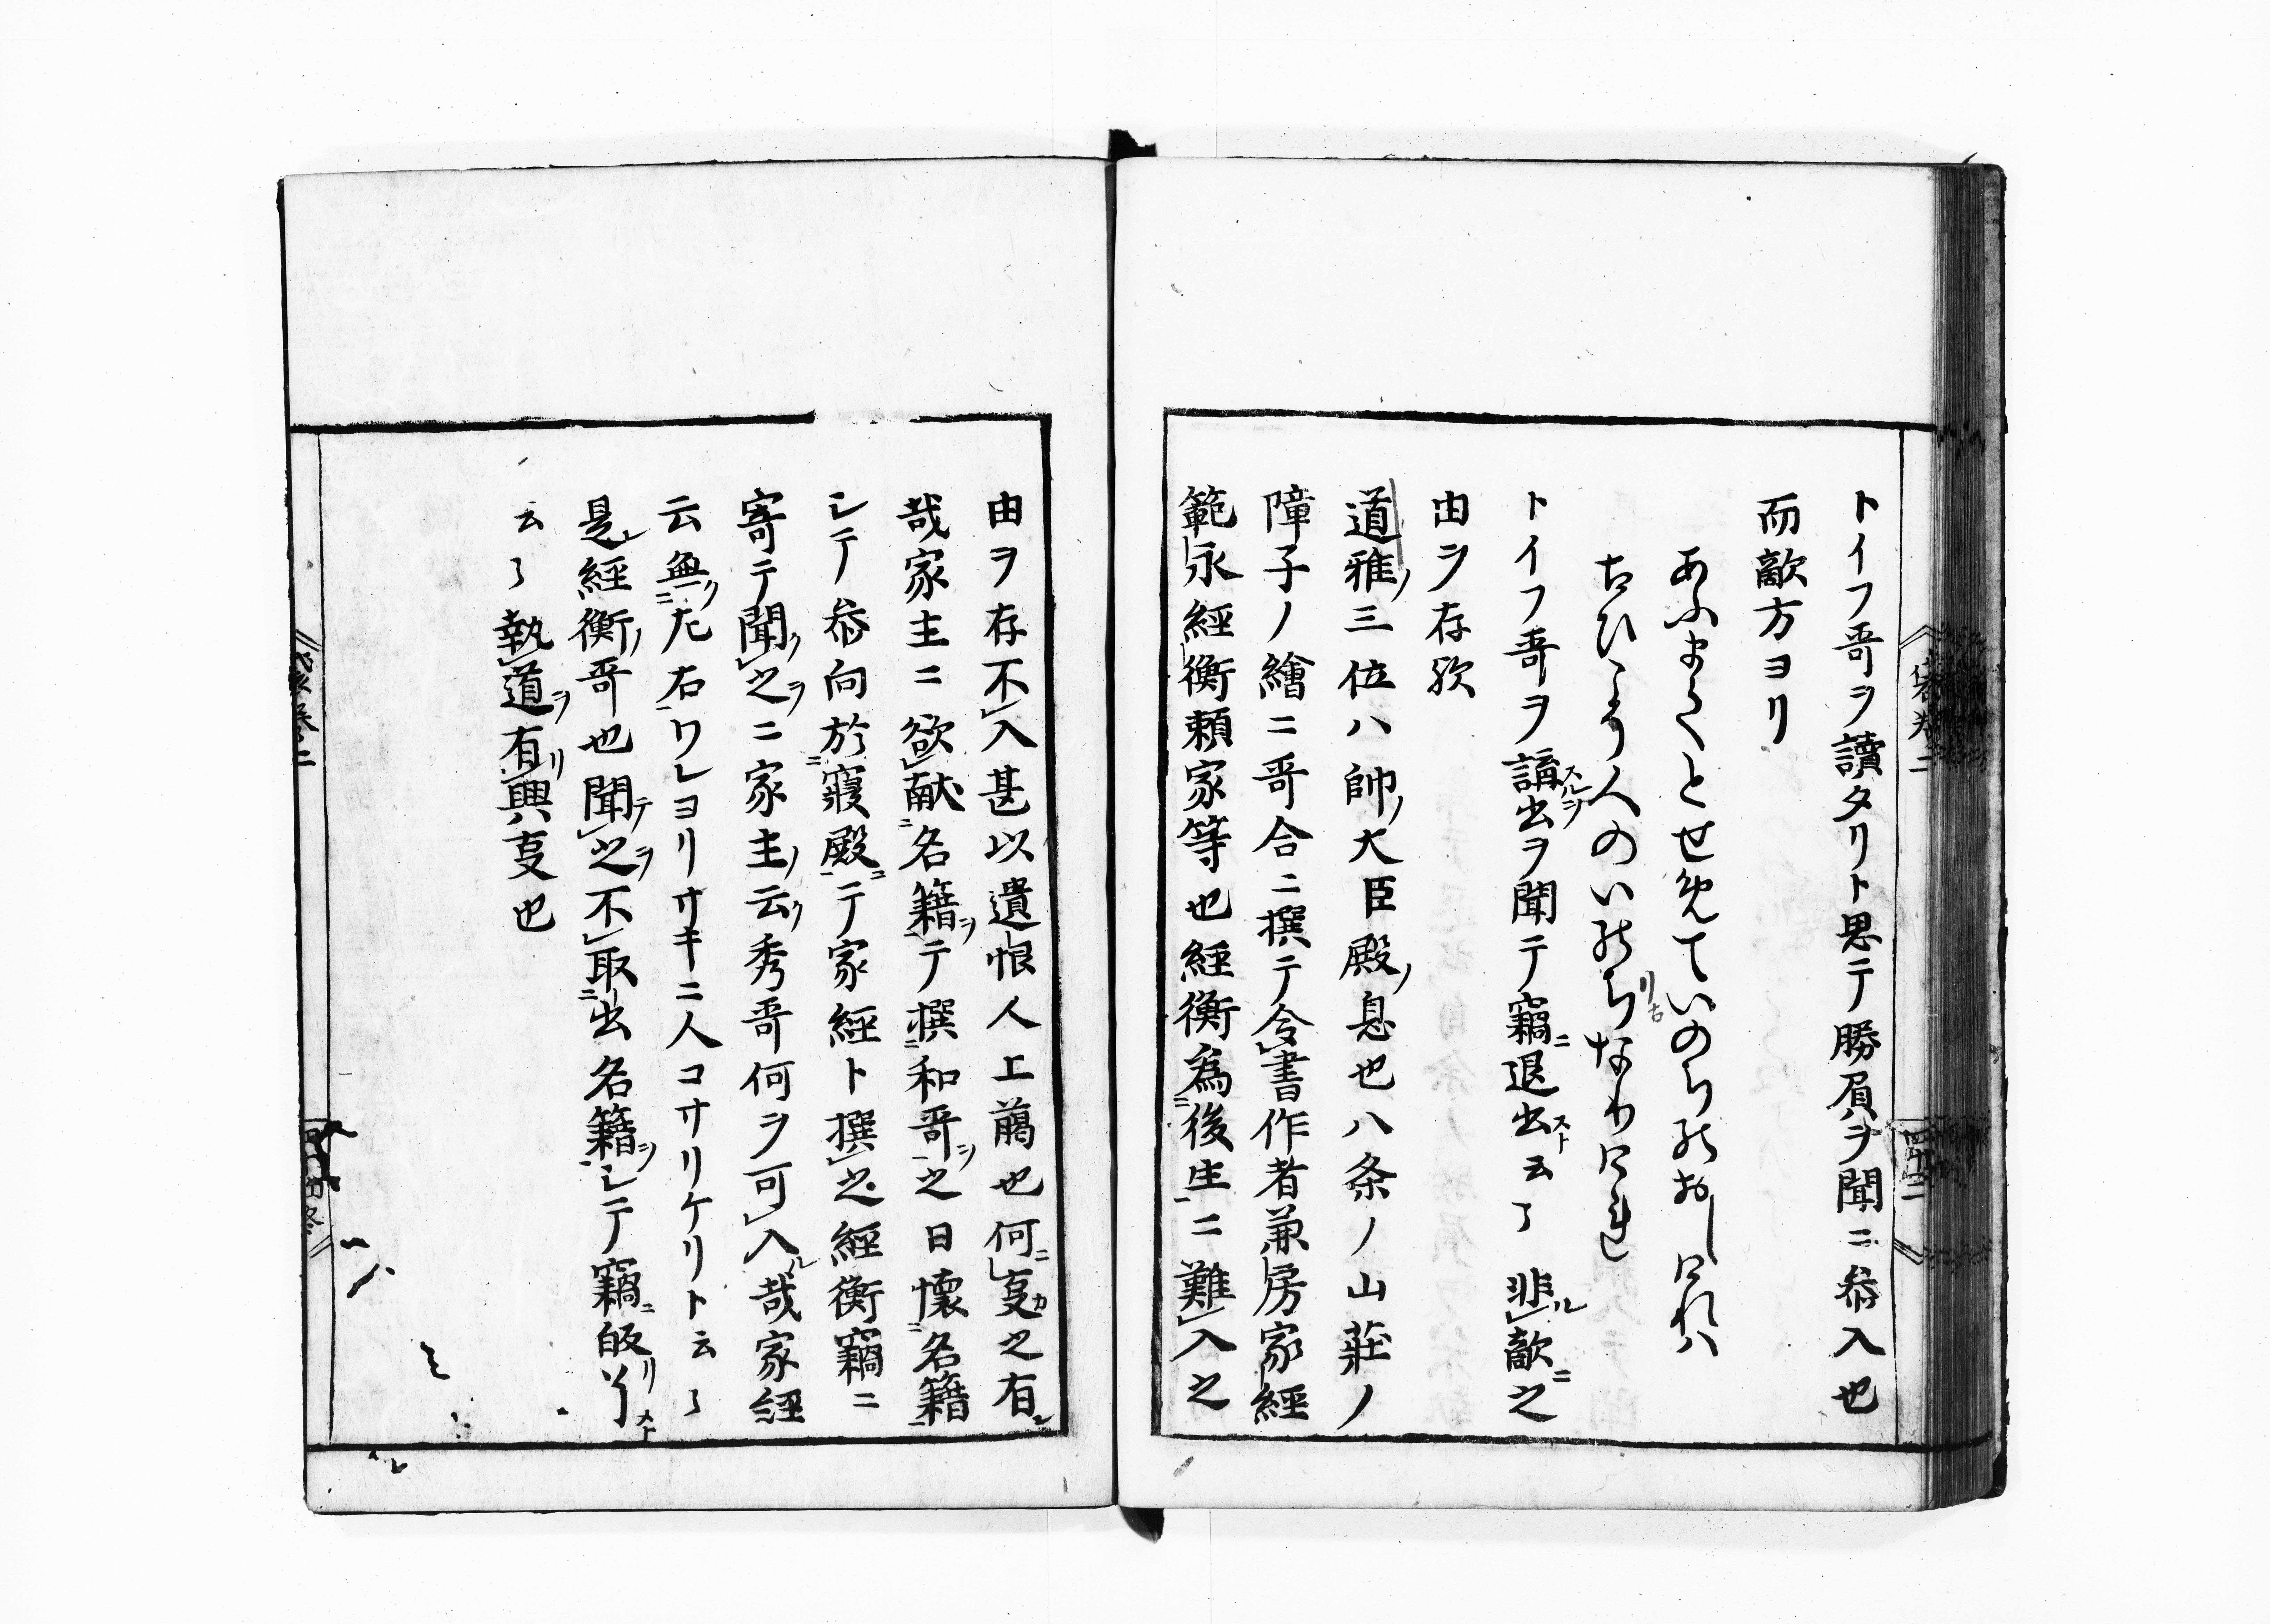 トイフ哥ヲ讀タリト思テ勝負ヲ聞ニ參入也
而敵方ヨリ
あふまくとせめていのちのおしけれハ
こひこそ人のいのちなりけれ
トイフ哥ヲ講出スルヲヲ聞テ竊ニ退出スト云了非ル敵ニ之
由ヲ存歟
道雅ノ三位ハ帥ノ大臣殿ノ息也八条ノ山莊ノ
障子ノ繪ニ哥合ニ撰テ令書作者兼房家經
範永經衡頼家等也經衡為後生ニ難入之
由ヲ存不入甚以遺恨人上﨟也何亊カ之有
哉家主ニ欲献名籍ヲテ撰和哥ヲ之日懐名籍
シテ參向於寢殿ニテ家經ト撰之經衡竊ニ
寄テ聞クニ之ヲ家主ノ云ク秀哥何ヲ可入ル哉家經
云無左右ワレヨリサキニ人コサリケリト云了
是經衡ノ哥也聞テ之ヲ不取出名籍ヲシテ竊ニ皈リ了スト
云了執道ヲ有リ興亊也
袋巻二
四十二